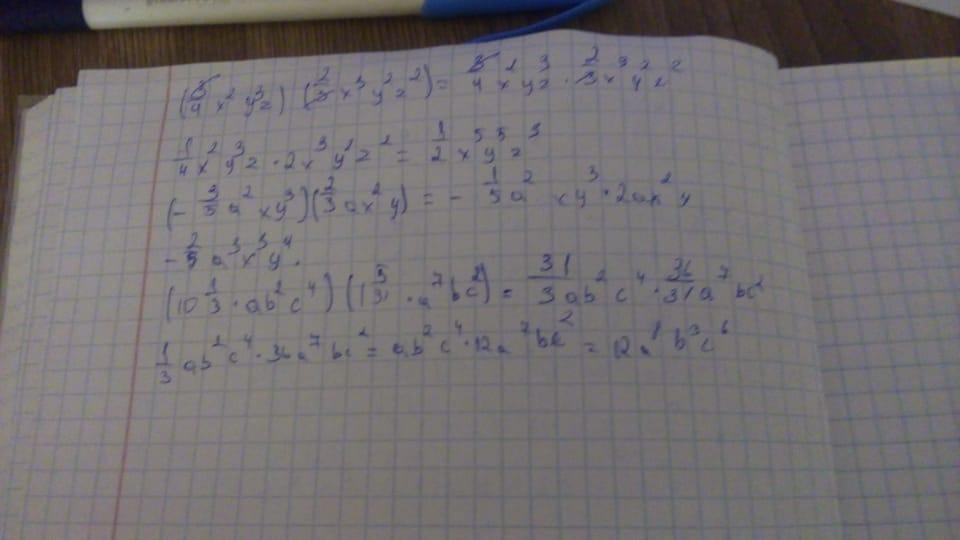 (3/4 x² y³z) (2/3 x³ y²z²) = 3/4 x² y³z · 2/3 x³ y²z²
1/4 x² y³z · 2x³ y²z² = 1/2 x⁵ y⁵ z³
(- 3/5 a² xy³)(2/3 ax² y) = - 1/5 a² xy³ · 2ax² y
- 2/5 a³ x³ y⁴.
(10 1/3 · ab² c⁴) (1 5/31 · a⁷ bc²) = 31/3 ab² c⁴ · 36/31 a⁷ bc²
1/3 ab² c⁴ · 36a⁷ bc² = ab² c⁴ · 12a⁷ bc² = 12a⁸ b³ c⁶